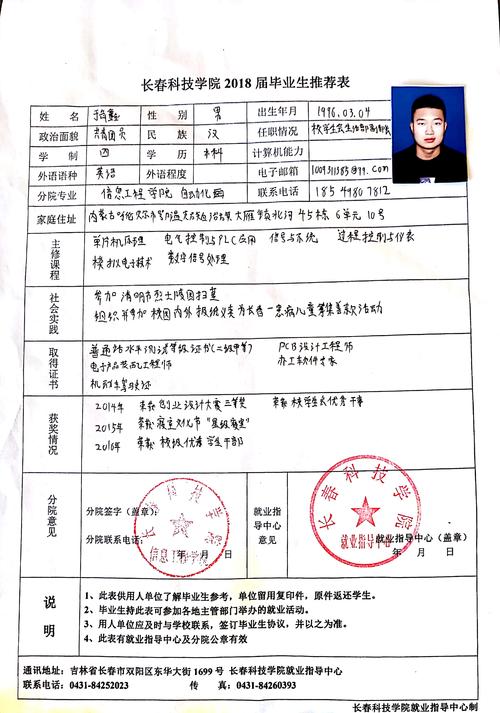 长春科技学院 2018 届毕业生推荐表
姓 名 性 别 男 出生年月 1996.03.04
政治面貌 共青团员 民 族 汉 任职情况
学 制 四 学 历 本科 计算机能力
外语语种 英语 外语程度 电子邮箱
分院专业 信息工程学院 自动化 联系电话
家庭住址 内蒙古呼伦贝尔市鄂温克族自治旗大雁镇北河45栋6单元10号
主修课程
单片机原理 电气控制与PLC应用 信号与系统 过程控制与仪表
模拟电子技术 数字信号处理
社会实践
参加清明节烈士陵园扫墓
组织并参加校园内外报级义卖为长春一患病儿童筹集善款活动
取得证书
普通话水平测试等级证书(二级甲等) PCB设计工程师
电子产品装配工程师 办工软件专家
机动车驾驶证
获奖情况
2014年 荣获创业设计大赛三等奖 荣获校学生会优秀干事
2015年 荣获寝室文化节“星级寝室”
2016年 荣获校级优秀学生干部
分院意见
分院签字（盖章）：
分院联系电话：
年 月 日
长春科技学院
信息工程学院
就业指导中心意见
长春科技学院
就业指导中心
就业指导中心（盖章）
年 月 日
说明
1、此表供用人单位了解毕业生参考，单位留用复印件，原件返还学生。
2、毕业生持此表可参加各地主管部门举办的就业活动。
3、用人单位应及时与学校联系，签订毕业生协议，并以之为准。
4、此表有就业指导中心及分院公章有效
通讯地址：吉林省长春市双阳区东华大街 1699 号 长春科技学院就业指导中心
联系电话：0431-84252023 传 真：0431-84260393
长春科技学院就业指导中心制